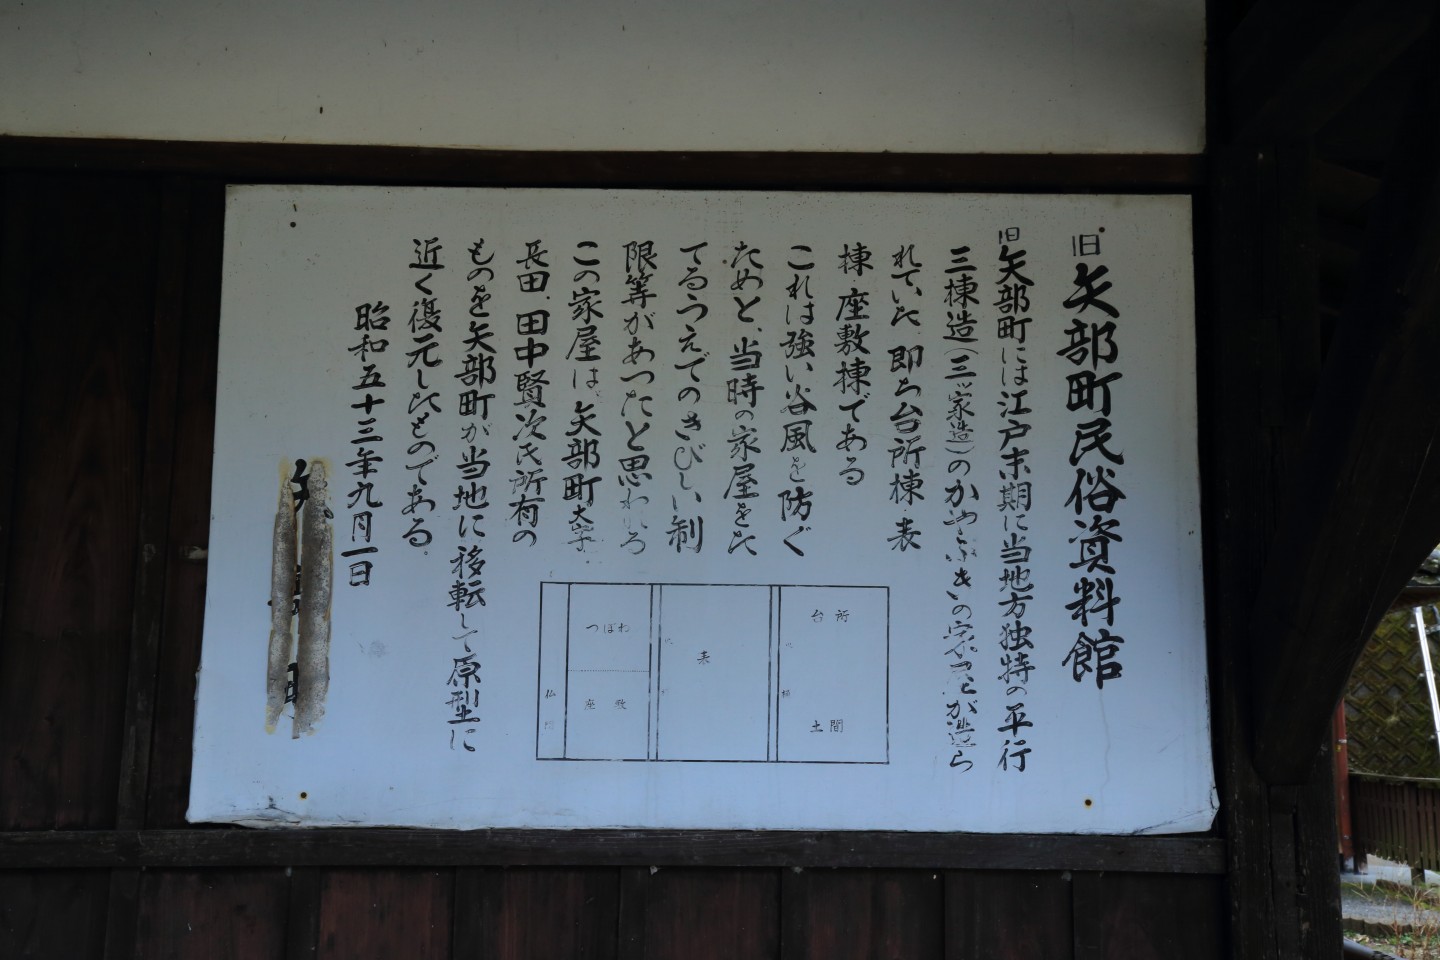 旧矢部町民俗資料館
旧矢部町には江戸末期に当地方独特の平行
三棟造(三ッ家造)のかやぶきの家屋が造ら
れていた、即ち台所棟、表
棟、座敷棟である
これは強い谷風を防ぐ
ためと、当時の家屋をた
てるうえでのきびしい制
限等があつたと思われる
この家屋は、矢部町大字
長田、田中賢次氏所有の
ものを矢部町が当地に移転して原型に
近く復元したものである。
昭和五十三年九月一日
台所
土間
表
つぼね
座敷
仏